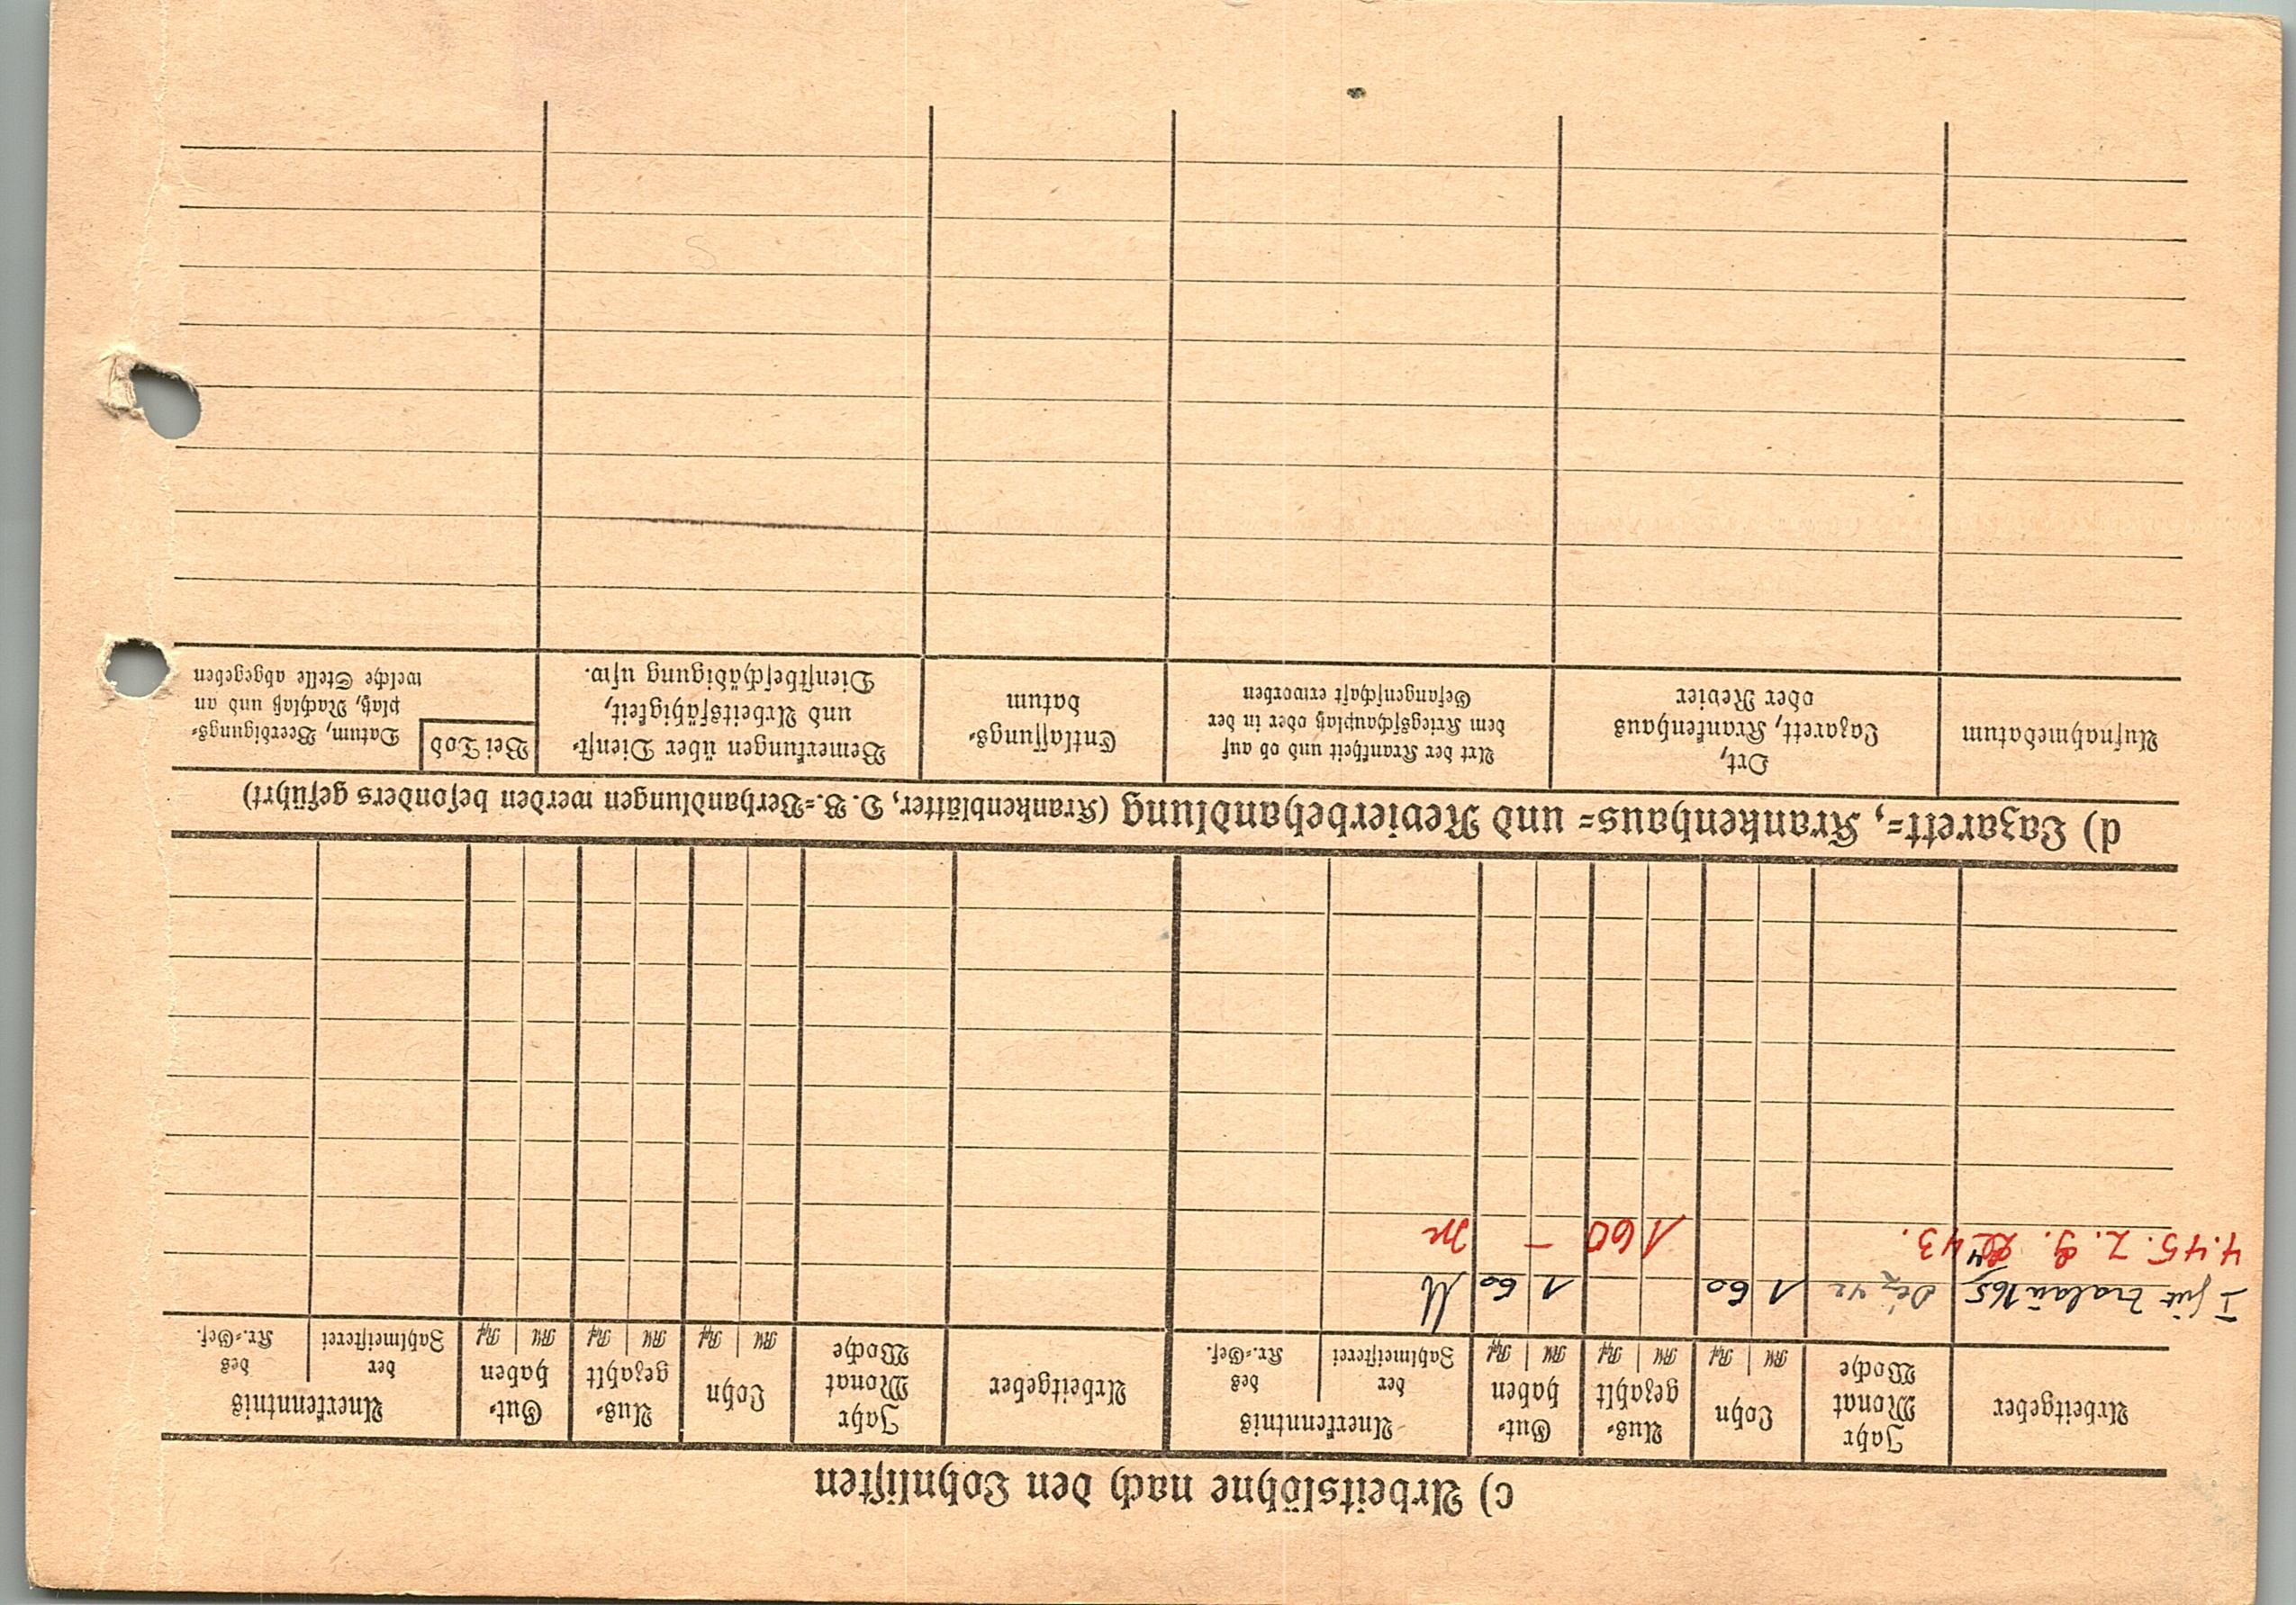 c) Arbeitslöhne nach den Lohnlisten
Arbeitgeber Jahr Monat Woche Lohn RM Rpf Aus- gezahlt RM Rpf Gut- haben RM Rpf Anerkenntnis der Zahlmeisterei des Kr.-Gef. Arbeitgeber Jahr Monat Woche Lohn RM Rpf Aus- gezahlt RM Rpf Gut- haben RM Rpf Anerkenntnis der Zahlmeisterei des Kr.-Gef.
165 Dez 42 1 60 1 60
43. 1 60 –
d) Lazarett-, Krankenhaus- und Revierbehandlung (Krankenblätter, D. B.-Verhandlungen werden besonders geführt)
Aufnahmedatum
Ort,
Lazarett, Krankenhaus
oder Revier
Art der Krankheit und ob auf
dem Kriegsschauplatz oder in der
Gefangenschaft erworben
Entlassungs-
datum
Bemerkungen über Dienst-
und Arbeitsfähigkeit,
Dienstbeschädigung usw.
Bei Tod
Datum, Beerdigungs-
platz, Nachlaß und an
welche Stelle abgegeben